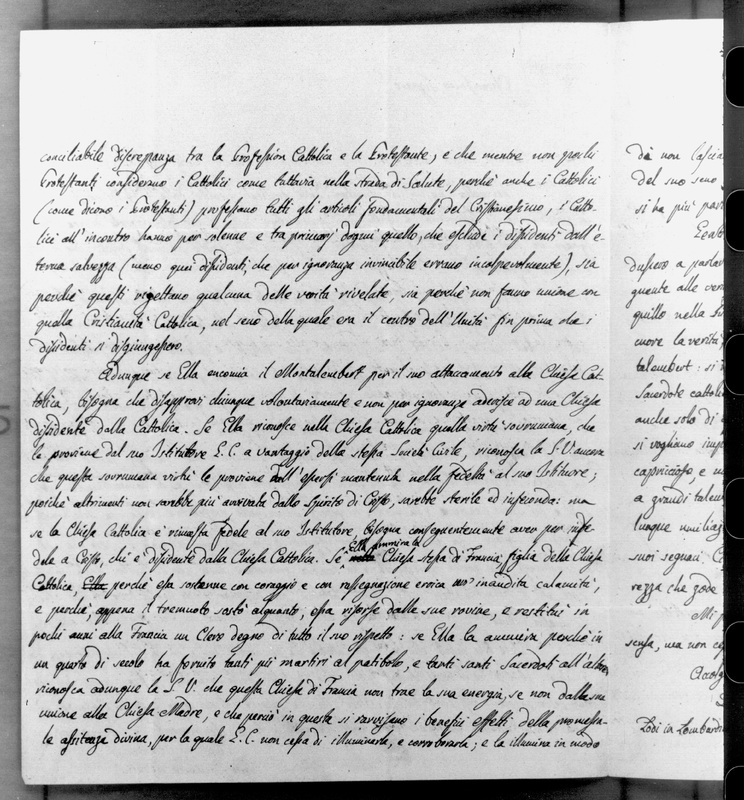 conciliabile discrepanza tra la Profession Cattolica e la Protestante, e che mentre non pochi
Protestanti considerano i Cattolici come tuttavia nella strada di Salute, perchè anche i Cattolici
(come dicono i Protestanti) professano tutti gli articoli fondamentali del Cristianesimo, i Catto-
lici all'incontro hanno per solenne e tra primarj dogmi quello, che esclude i dissidenti dall'e-
terna salvezza (meno quei dissidenti, che per ignoranza invincibile errano incolpevolmente), sia
perchè questi rigettano qualcuna delle verità rivelate, sia perchè non fanno unione con
quella Cristianità Cattolica, nel seno della quale era il centro dell'Unità fin prima che i
dissidenti si disgiungessero.
Adunque se Ella encomia il Montalembert per il suo attaccamento alla Chiesa Cat-
tolica, bisogna che disapprovi chiunque volontariamente e non per ignoranza aderisce ad una Chiesa
dissidente dalla Cattolica. Se Ella riconosce nella Chiesa Cattolica quella virtù sovrumana, che
le proviene dal suo Istitutore G. C. a vantaggio della stessa Società Civile, riconosca la S. V. ancora
che questa sovrumana virtù le proviene dall'essersi mantenuta nella fedeltà al suo Istitutore;
poichè altrimenti non sarebbe più avvivata dallo Spirito di Cristo, sarebbe sterile ed infeconda: ma
se la Chiesa Cattolica è rimasta fedele al suo Istitutore, bisogna conseguentemente aver per infe-
dele a Cristo, chi è dissidente dalla Chiesa Cattolica. Se Ella ammira la Chiesa stessa di Francia figlia della Chiesa
Cattolica, Ella perchè essa sostenne con coraggio e con rassegnazione eroica un' inaudita calamità,
e perchè, appena il tremuoto sostò alquanto, essa risorse dalle sue rovine, e restituì in
pochi anni alla Francia un Clero degno di tutto il suo rispetto: se Ella la ammira perchè in
un quarto di secolo ha fornito tanti pii martiri al patibolo, e tanti santi Sacerdoti all'altare,
riconosca adunque la S. V. che questa Chiesa di Francia non trae la sua energia, se non dalla sua
unione alla Chiesa Madre, e che perciò in questa si ravvisano i benefici effetti della promessa-
le assistenza divina, per la quale G. C. non cessa di illuminarla, e corroborarla; e la illumina in modo
di non lascia
del suo seno
si ha più
guente alle ver
quillo nella
cuore la verità
talembert: si
Sacerdote cattoli
anche solo di
si vogliono imp
a grandi talen
suoi seguaci. C
rezza che gode
Mi p
Lodi in Lombardia